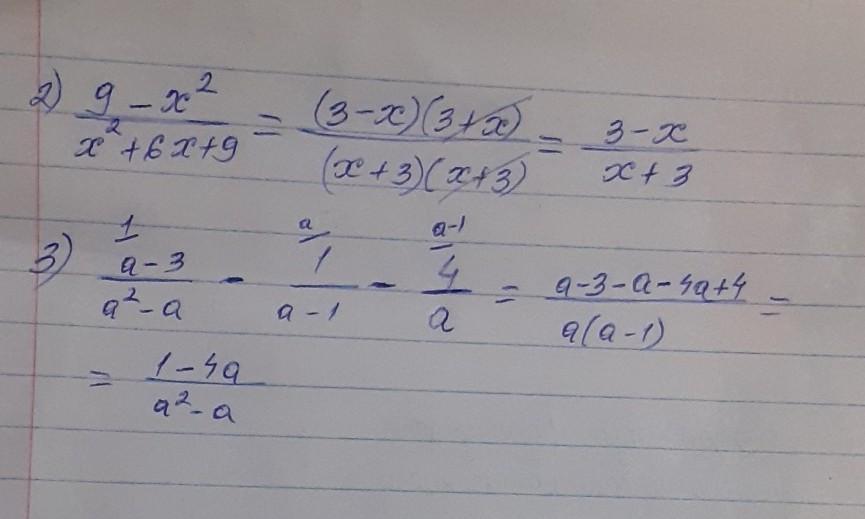 2) (9 - x²)/(x² + 6x + 9) = ((3 - x)(3 + x))/((x + 3)(x + 3)) = (3 - x)/(x + 3)
1/ a/ a-1/
3) (a - 3)/(a² - a) - 1/(a - 1) - 4/a = (a - 3 - a - 4a + 4)/(a(a - 1)) =
= (1 - 4a)/(a² - a)